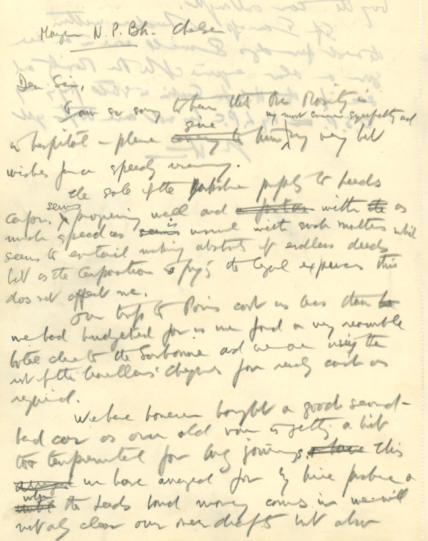 Manager N.P.Bk. Chelsea
Dear Sir,
I am so sorry to hear that Mr. is
give my most sincere sympathy and
in hospital – please convey to him my very best
wishes for a speedy recovery.
The sale of the property to Leeds
seems
Corpn. is progressing well and with as
much speed as is usual with such matters which
seems to entail making abstracts of endless deeds
but as the Corporation pays the legal expenses this
does not affect me.
Our trip to Paris cost us less than
we had budgeted for as we found a very reasonable
hotel close to the Sorbonne and we are using the
rest of the travellers' cheques for ready cash as
required.
We have however bought a good second-
hand car as our old van is getting a bit
too temperamental for long journeys This
we have arranged for by hire purchase
when
the Leeds money comes in we will
not only clear our overdraft but also